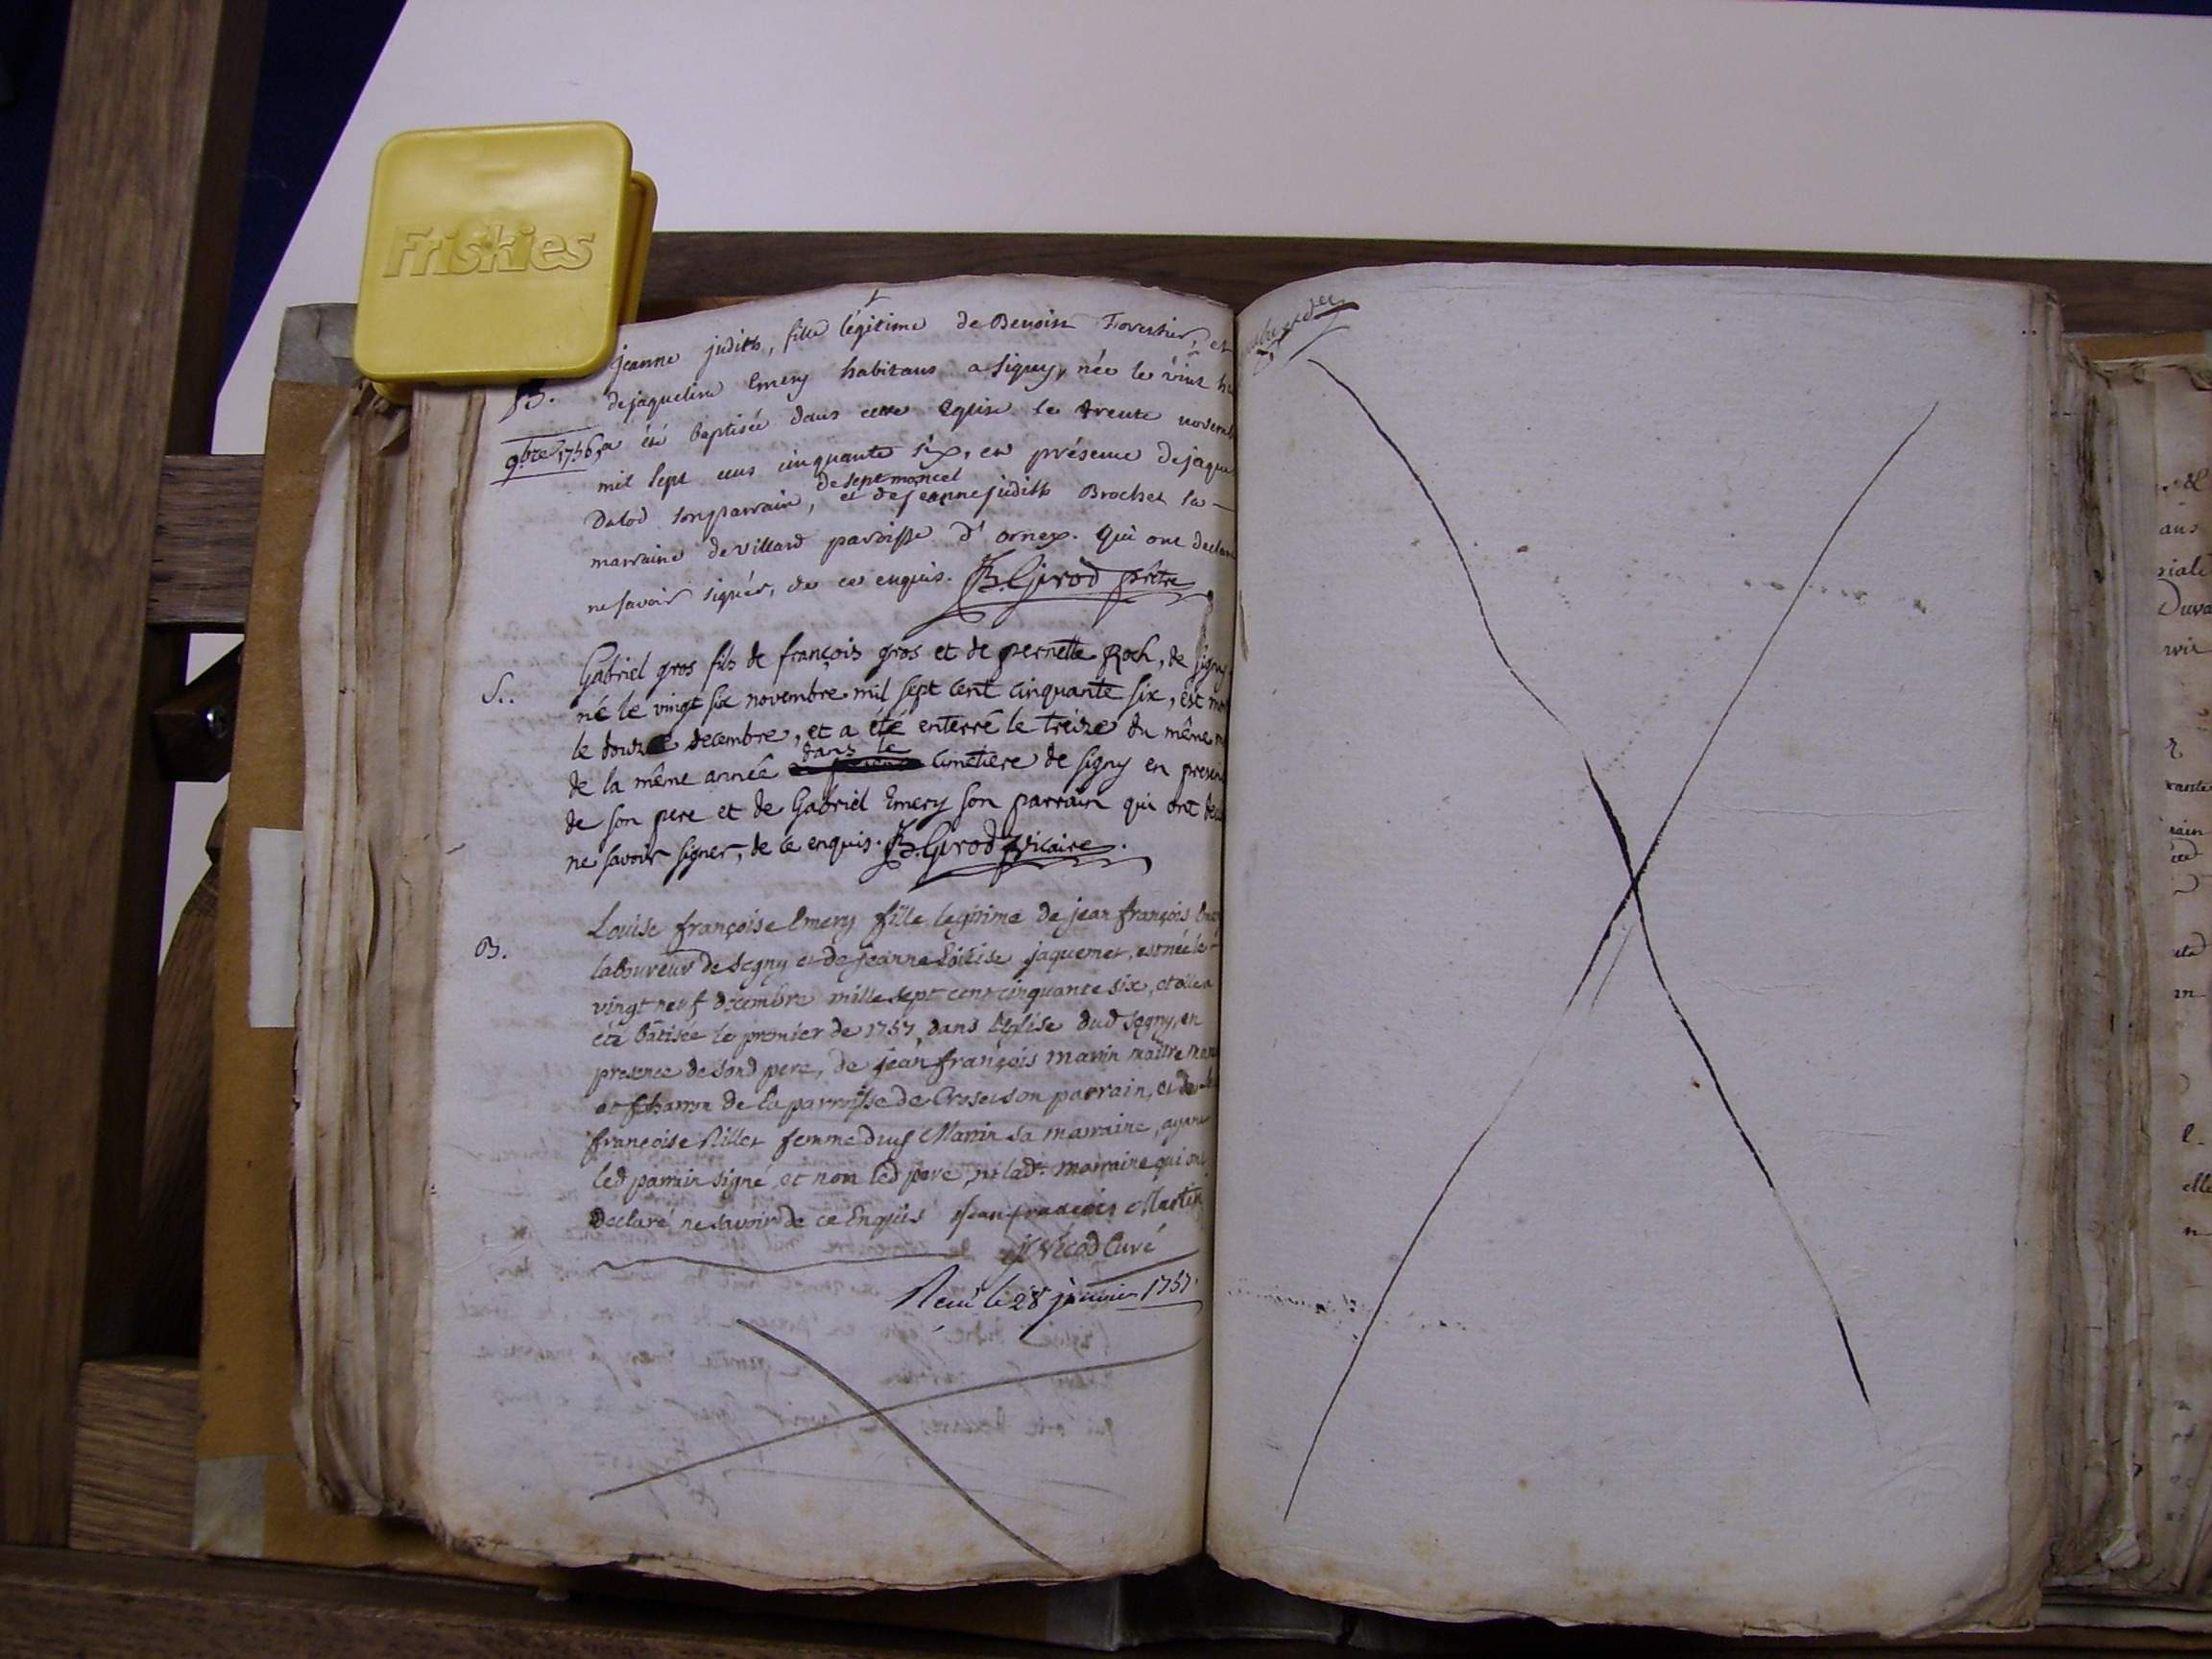 Friskies
jeanne judith, fille légitime de Benoist Forestier, et
B. de jaqueline Emery habitans a Signy, née le vint hu
9bre 1756, a été baptisée dans cette Eglise le trente novemb
mil sept cens cinquante six, en présence de jaque
de septmoncel
Dalod son parrain, et de jeanne judith Brochet sa
marraine de villard paroisse d'ornex. qui ont declar
ne savoir signer, de ce enquis. B. Girod prêtre
Gabriel gros fils de françois gros et de pernette Roch, de signy
S.. né le vingt six novembre mil sept cent cinquante six, est mo
le douze decembre, et a eté enterré le treize du même m
dans le
de la même année cimetiere de signy en presen
de son pere et de Gabriel Emery son parrain qui ont de
ne savoir signer, de ce enquis. B. Girod vicaire.
Louise françoise Emery fille legitime de jean françois Em
B. laboureur de Segny et de jeanne Loüise jaquemet, est née le
vingt neuf decembre mille sept cent cinquante six, et elle a
été bâtisée le premier de 1757, dans l'Eglise dud Segny, en
presence de sond pere, de jean françois martin maitre
et charron de la parroisse de Croset son parrain, et de
françoise Rillet femme dud Martin sa marraine, ayant
led parrain signé, et non led pere, ni lad. marraine qui ont
declaré ne savoir de ce Enquis jean françois Martin
Curé
le 28 janvier 1757.
aus
riale
Duva